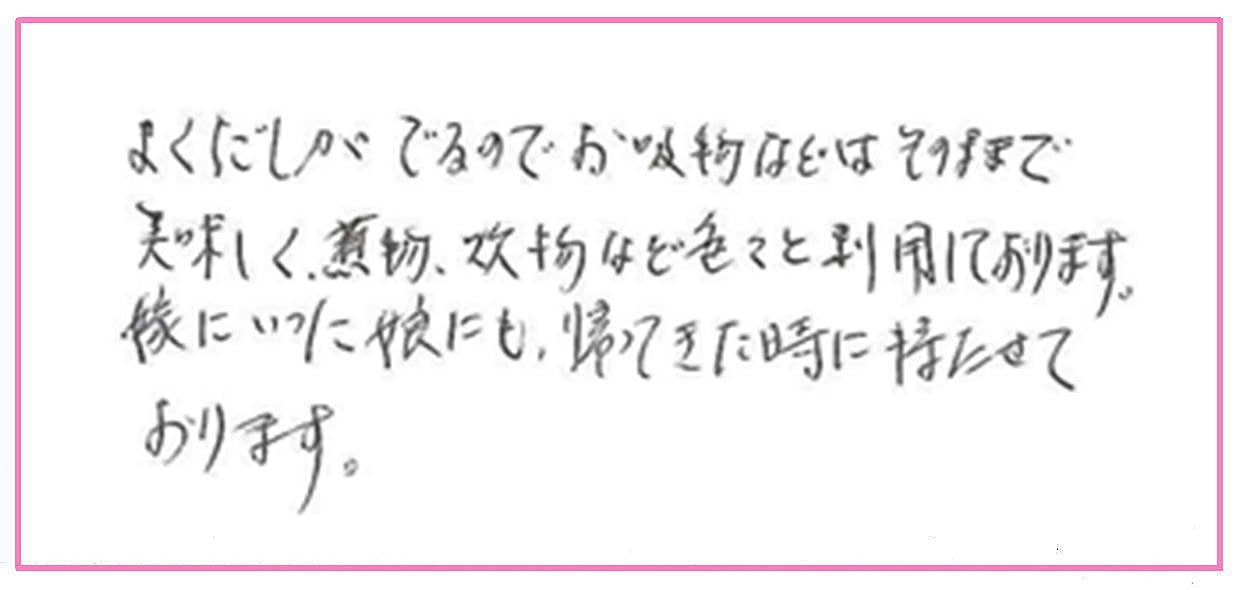 よくだしがでるのでお吸物などはそのままで
美味しく、煮物、炊物など色々と利用しております。
嫁にいった娘にも、帰ってきた時に持たせて
おります。